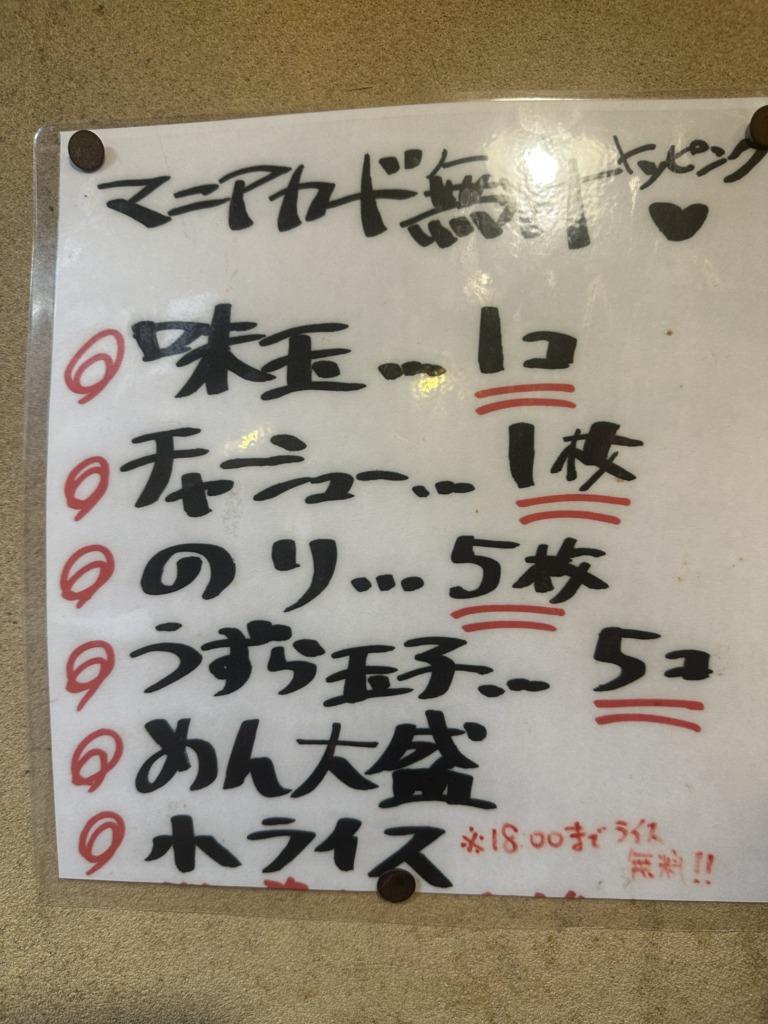 マニアカード無料トッピング♥
味玉… 1コ
チャーシュー… 1枚
のり… 5枚
うずら玉子… 5コ
めん大盛
小ライス ※18:00まで ライス
無料!!